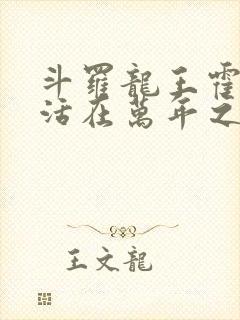 斗羅龍王霍
活在萬年之
王文龍